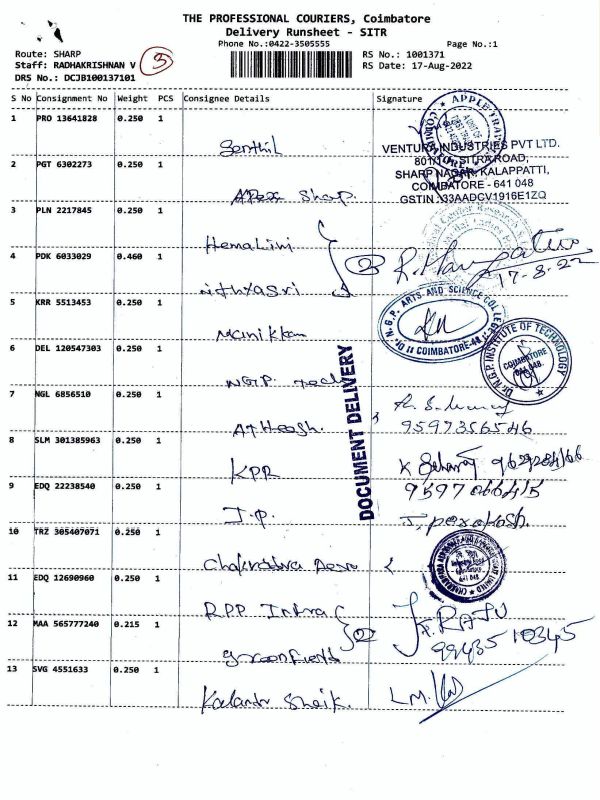 THE PROFESSIONAL COURIERS, Coimbatore
Delivery Runsheet - SITR
Phone No.:0422-3505555
Page No.:1
Route: SHARP
RS No.: 1001371
Staff: RADHAKRISHNAN V
5
RS Date: 17-Aug-2022
DRS No.: DCJB100137101
S No Consignment No Weight PCS Consignee Details Signature
1 PRO 13641828 0.250 1
Senthil
VENTURA INDUSTRIES PVT LTD.
801/1, SITRA ROAD,
2 PGT 6302273 0.250 1
SHARP NAGAR, KALAPPATTI,
COIMBATORE - 641 048
Apex Sharp.
GSTIN :33AADCV1916E1ZQ
3 PLN 2217845 0.250 1
Hemalini
4 PDK 6033029 0.460 1
17-8-22
nithyasri
5 KRR 5513453 0.250 1
Dr. N.G.P. ARTS AND SCIENCE COLLEGE
COIMBATORE-48
manikkam
6 DEL 120547303 0.250 1
Dr. N.G.P. INSTITUTE OF TECHNOLOGY
COIMBATORE
641 048.
N.G.P. Tech
DOCUMENT DELIVERY
7 NGL 6856510 0.250 1
9597356546
8 SLM 301385963 0.250 1
KPR
9 EDQ 22238540 0.250 1
J.P.
10 TRZ 305407071 0.250 1
11 EDQ 12690960 0.250 1
RPP Infra
12 MAA 565777240 0.215 1
K. RAJU
9943510345
greenfield
13 SVG 4551633 0.250 1
Kalandr Sheik.
L.M.